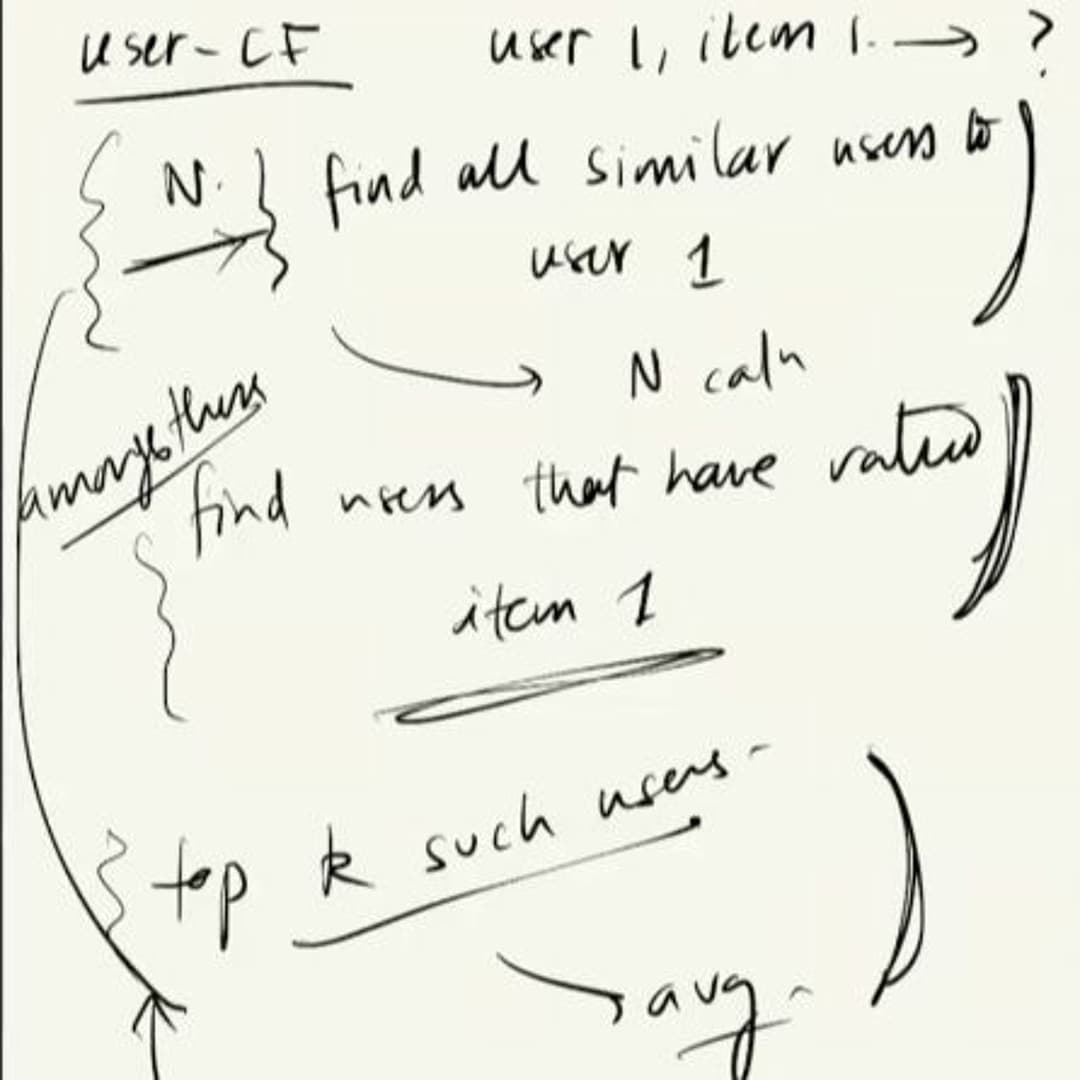 user-CF user 1, item 1. → ?
N. find all similar users to
user 1
→ N calⁿ
amongst them
find users that have rated
item 1
top k such users-
→ avg.